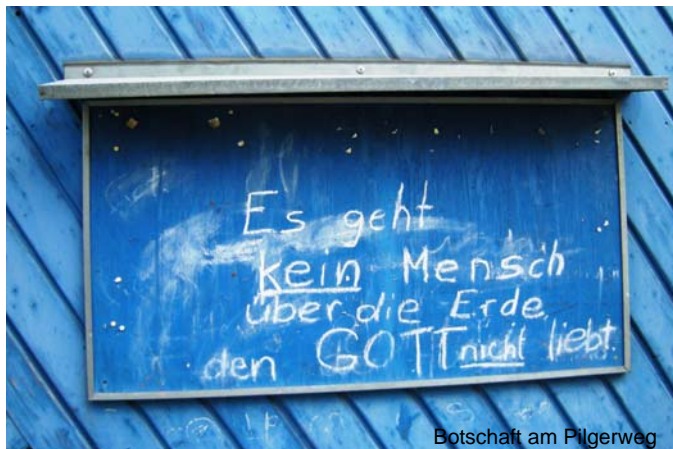 Es geht
kein Mensch
über die Erde
den GOTT nicht liebt.
Botschaft am Pilgerweg